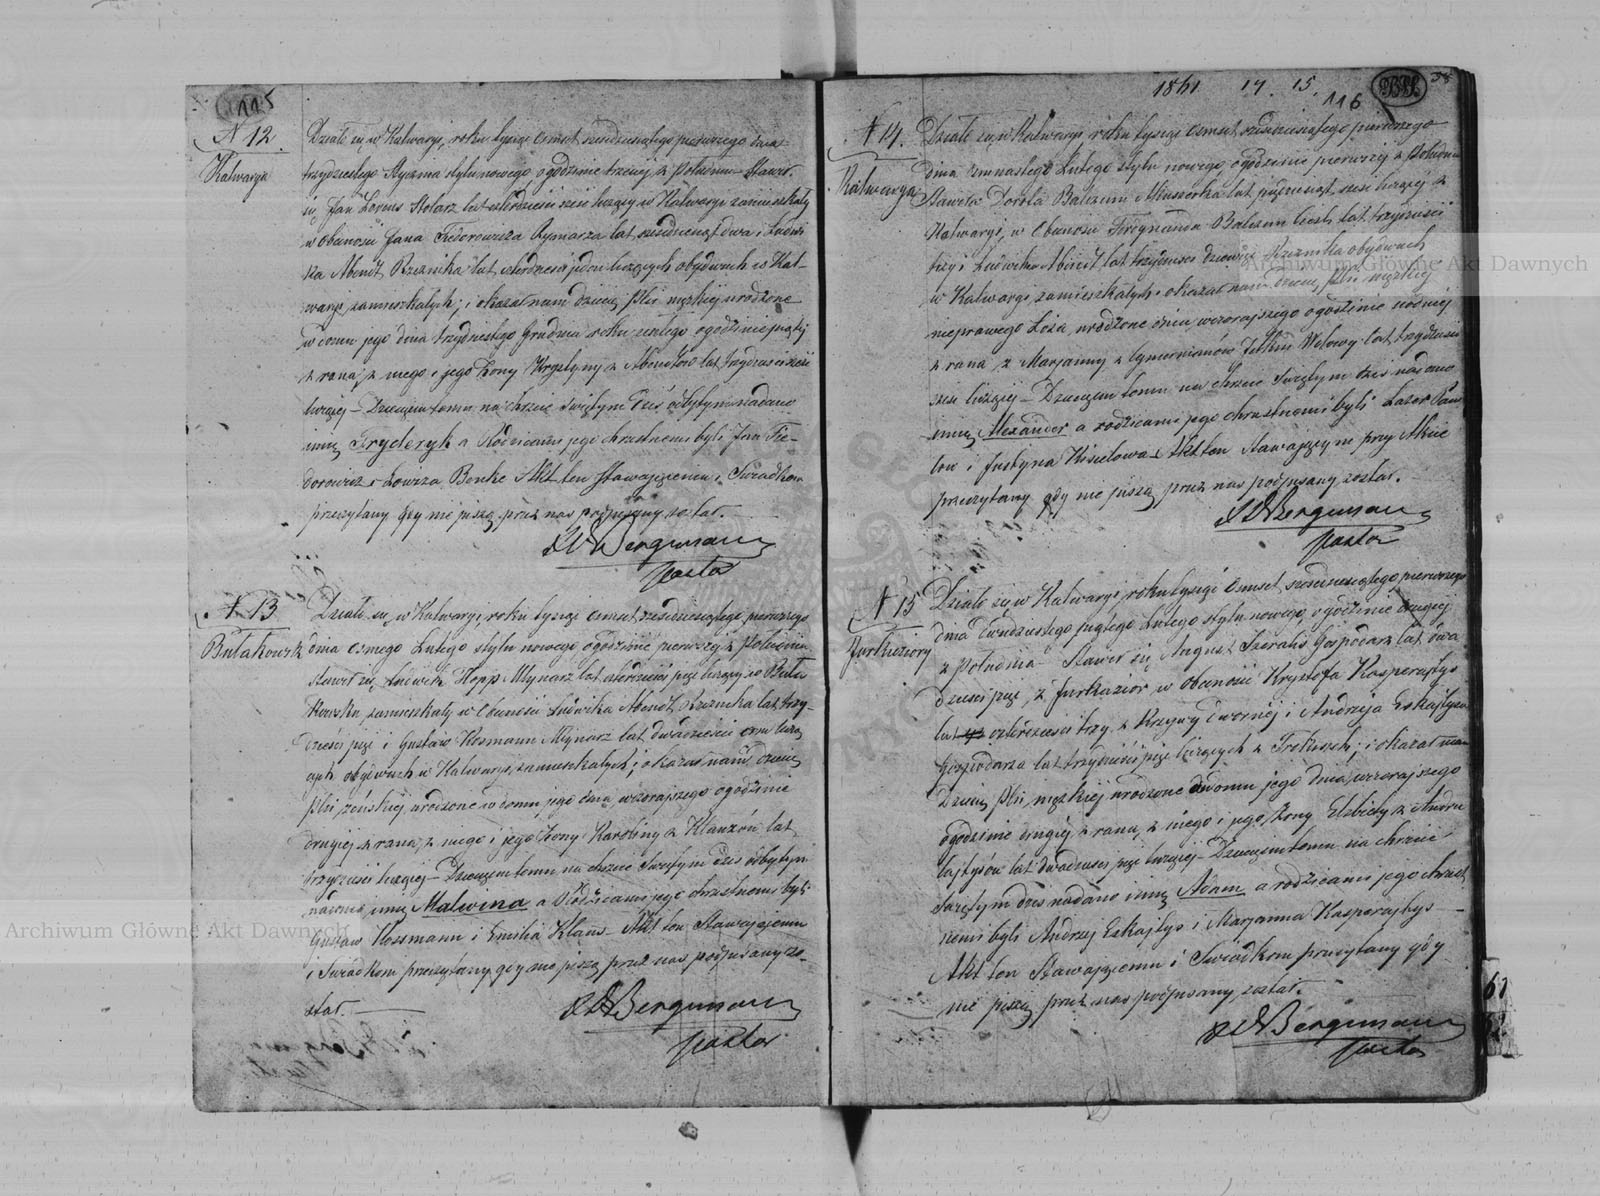 115
N 12.
Kalwarya
Działo się w Kalwaryi, roku tysiąc ośmset sześćdziesiątego pierwszego dnia
trzydziestego Stycznia stylu nowego o godzinie trzeciej z Południa Stawił
się Jan Lorens Stolarz lat czterdzieści sześć liczący w Kalwaryi zamieszkały
w obecności Jana Fiedorowicza Rymarza lat sześćdziesiąt dwa i Ludwi
ka Abendt Rzeznika lat jeden liczących obydwóch w Kal-
waryi zamieszkałych; i okazał nam dziecię płci męzkiej urodzone
w domu jego dnia trzydziestego Grudnia roku zeszłego o godzinie piątej
z rana, z niego i jego Żony Krystyny z Abendtów lat trzydzieści sześć
liczącej – Dziecięciu temu na chrzcie świętym dziś odbytym nadano
imię Fryderyk a Rodzicami jego chrzestnemi byli Jan Fie-
dorowicz i Lowiza Benke Akt ten stawającemu i Świadkom
przeczytany gdy nie piszą przez nas podpisany został. –
Bergmann
pastor
N 13
Butakowsk
Działo się w Kalwaryi roku tysiąc ośmset sześćdziesiątego pierwszego
dnia ósmego Lutego stylu nowego o godzinie pierwszej z Południa
stawił się Ludwik Hopp Młynarz lat czterdzieści pięć liczący w Buta
kowsku zamieszkały w Obecności Ludwika Abendt Rzeznika lat trzy-
dzieści pięć i Gustaw Rosmann Młynarz lat dwadzieścia ośm licza
cych obydwóch w Kalwaryi zamieszkałych; i okazał nam dziecię
płci zeńskiej urodzone w domu jego dnia wczorajszego o godzinie
drugiej z rana, z niego i jego Żony Karoliny z Klauzów lat
trzydzieści liczącej – Dziecięciu temu na chrzcie Świętym dziś odbytym
nadano imię Malwina a Rodzicami jego chrzestnemi byli
Gustaw Rossmann i Emilia Klaus Akt ten Stawającemu
i Świadkom przeczytany, gdy nie piszą przez nas podpisany zo-
stał. –
Bergmann
pastor
1861 14. 15. 116
38
N 14.
Kalwarya
Działo się w Kalwaryi, roku tysiąc ośmset sześćdziesiątego pierwszego
dnia Lutego stylu nowego, o godzinie pierwszej z Południa
Stawiła Dorota Balczun Akuszerka lat pięćdziesiąt sześć licząca z
Kalwaryi, w Obecności Ferdynanda Balczun Cieśli lat trzydzieści
trzy i Ludwika Abendt lat trzydzieści dziewięć Rzeznika obydwóch
w Kalwaryi zamieszkałych i okazał nam dziecię płci męzkiej
nieprawego Łoża urodzone dnia wczorajszego o godzinie siódmej
z rana, z Marjanny z Wdowy lat trzydzieści
sześć liczącej – Dziecięciu temu na chrzcie Świętym dziś nadano
imię Alexander a rodzicami jego chrzestnemi byli Lazor Paw
łow i Justyna Kisielowa Akt ten Stawającym przy Akcie
przeczytany gdy nie piszą przez nas podpisany został. –
Bergmann
pastor
N 15
Jurksziory
Działo się w Kalwaryi, roku tysiąc ośmset sześćdziesiątego pierwszego
dnia dwudziestego piątego Lutego stylu nowego, o godzinie drugiej
z południa – Stawił się August Szeratis Gospodarz lat dwa
dzieści pięć, z w obecności Krysztofa Kasperajtys
lat czterdzieści trzy z Krzywy dwornej i Andrzeja Eskajtysa
gospodarza lat trzydzieści pięć liczących z ; i okazał nam
Dziecię płci męzkiej urodzone w domu jego dnia wczorajszego
o godzinie drugiej z rana, z niego i jego Żony Elżbiety z Andru
lajtysów lat dwadzieścia pięć liczącej – Dziecięciu temu na chrzcie
Świętym dziś nadano imię Adam a rodzicami jego chrzest
nemi byli Andrzej Eskajtys i Marjanna Kasperajtys –
Akt ten Stawającemu i Świadkom przeczytany gdy
nie piszą przez nas podpisany został. –
Bergmann
pastor
Archiwum Główne Akt Dawnych
Archiwum Główne Akt Dawnych